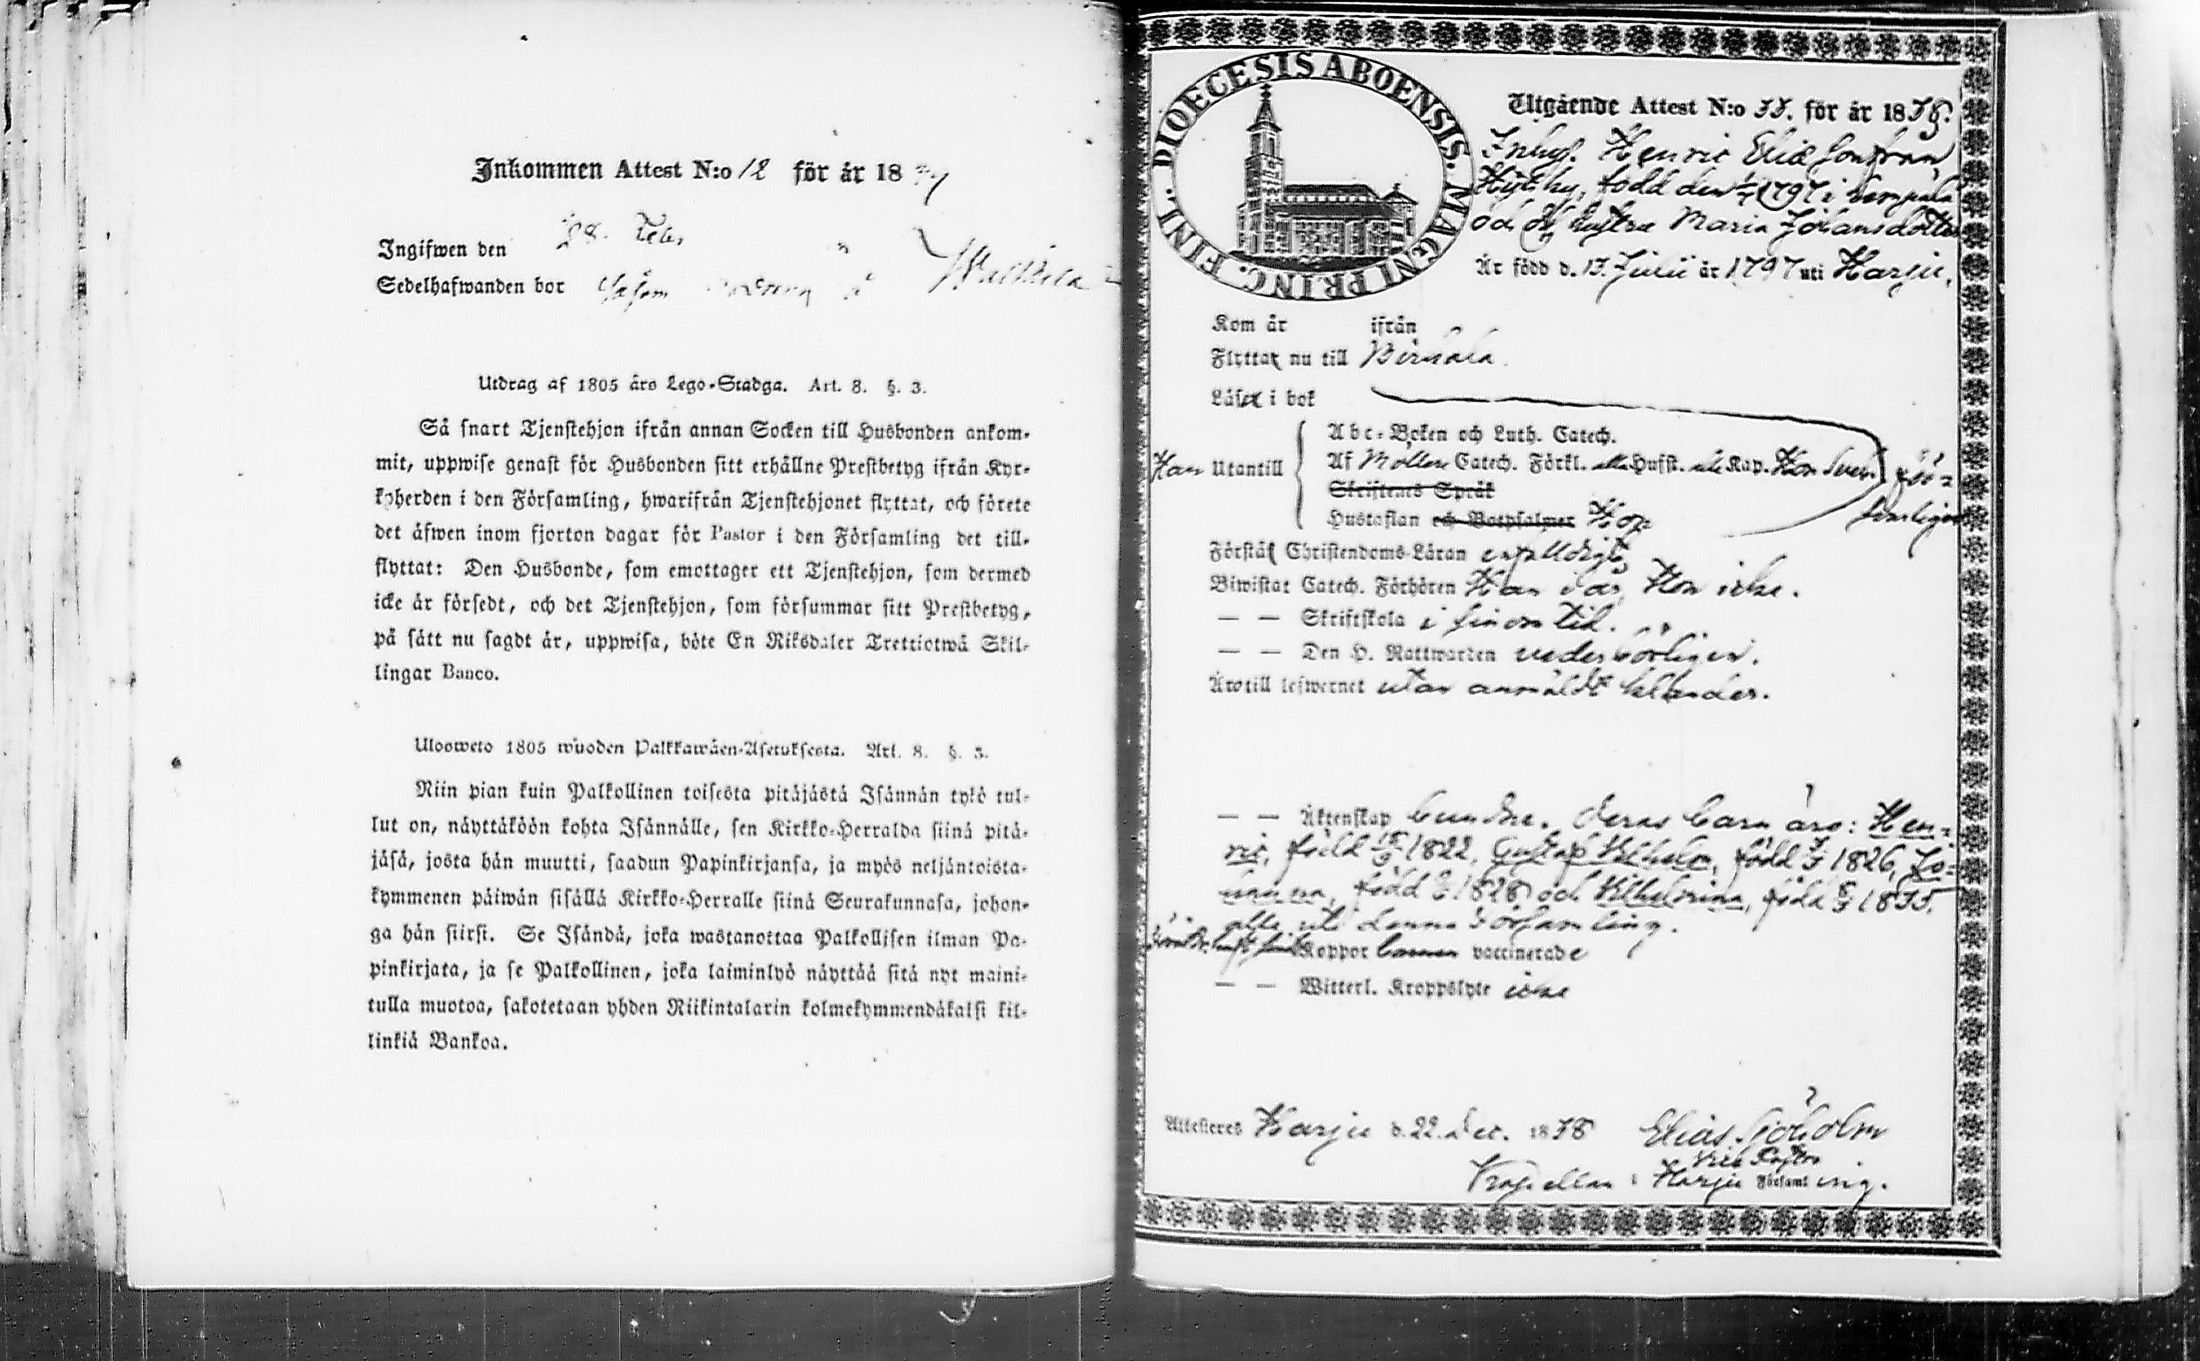 Inkommen Attest N:o 12 för år 18
Ingifwen den 28. Feb.
Sedelhafwanden bor
Utdrag af 1805 års Lego-Stadga. Art. 8. §. 3.
Så snart Tjenstehjon ifrån annan Socken till Husbonden ankom-
mit, uppwise genast för Husbonden sitt erhållne Prestbetyg ifrån Kyr-
koherden i den Församling, hwarifrån Tjenstehjonet flyttat, och förete
det äfwen inom fjorton dagar för Pastor i den Församling det till-
flyttat: Den Husbonde, som emottager ett Tjenstehjon, som dermed
icke är försedt, och det Tjenstehjon, som försummar sitt Prestbetyg,
på sätt nu sagdt är, uppwisa, böte En Riksdaler Trettiotwå Skil-
lingar Banco.
Ulosweto 1805 wuoden Palkkawäen-Asetuksesta. Art. 8. §. 3.
Niin pian kuin Palkollinen toisesta pitäjästä Isännän tykö tul-
lut on, näyttäköön kohta Isännälle, sen Kirkko-Herralda siinä pitä-
jäsä, josta hän muutti, saadun Papinkirjansa, ja myös neljäntoista-
kymmenen päiwän sisällä Kirkko-Herralle siinä Seurakunnasa, johon-
ga hän siirsi. Se Isändä, joka wastanottaa Palkollisen ilman Pa-
pinkirjata, ja se Palkollinen, joka laiminlyö näyttää sitä nyt maini-
tulla muotoa, sakotetaan yhden Riikintalarin kolmekymmendäkaksi kil-
linkiä Bankoa.
FINL. DIOECESIS ABOENSIS. MAGNI PRINC.
Utgående Attest N:o 33. för år 1838.
Inhys. Henric Eliæ son från
född den 1797 i
och H. Hustru Maria Johansdotter
Är född d. 13. Julii år 1797 uti Karju.
Kom år ifrån
Flyttar nu till Birkala.
Läser i bok
Abc-Boken och Luth. Catech.
Han Utantill Af Möllers Catech. Förkl. Hufst. Kap. Hon Svag för-
Skriftenes Språk svarligen
Hustaflan och Botpsalmer Hop
Förstår Christendoms-Läran enfaldigt
Biwistat Catech. Förhören Han var, Hon icke.
— — Skriftskola i sinom tid.
— — Den H. Nattwarden vederbörligen.
Äro till lefwernet utan anmäldt klander.
— — Äktenskap bundne. Deras barn äro: Hen-
ric, född 1822, Gustaf Vilhelm, född 1826, Jo-
hanna, född 1828 och Vilhelmina, född 1835.
alla uti denna Församling.
Koppor barnen vaccinerade
— — Witterl. Kroppslyte icke
Attesteres Karju d. 22. Dec. 1838 Elias Sjöholm
Vice Pastor
Kapellan i Karju Församling.